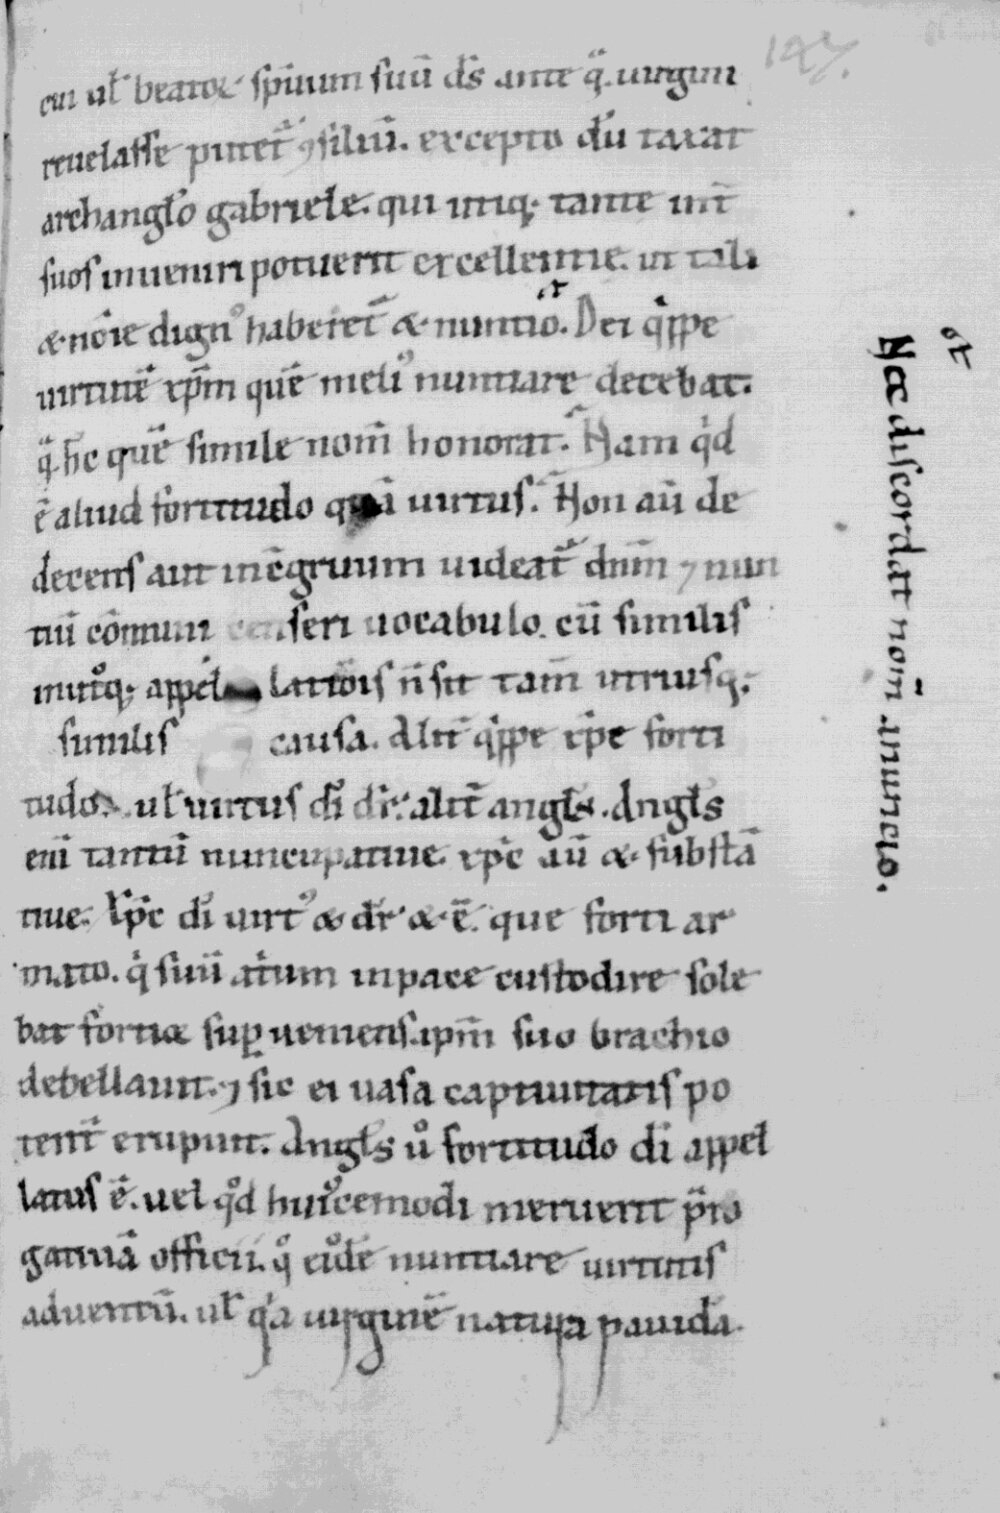 cui ul̄ beatoꝝ spirituum suū d̄s ante q̄ uirgini
reuelasse putet̄ ꝯsiliū. excepto dū taxat
archangl̄o gabriele. qui utiq; tante int̄
suos inueniri potuerit excellentie. ut tali
& noīe dign᷒ haberet̄ & nuntio. Dei q̇ppe
uirtutē xp̄m quē meli᷒ nuntiare decebat.
q̄ hc̄ quē simile nom̄ honorat. Nam qͥd
ē aliud fortitudo quā uirtus. Non aū de
decens aut incōgruum uideat̄ dn̄m ⁊ nun
tiū cōmuni censeri uocabulo. cū similis
in utroq; appel lationis n̄ sit tam̄ utriusq;
similis causa. Alit̄ q̇ppe xp̄c forti
tudo. ul̄ uirtus dī dr̄. alit̄ angl̄s. Angl̄s
enī tantū nuncupatiue. xp̄c aū & substā
tiue. Xp̄c dī uirt᷒ & dr̄ & ē. que forti ar
mato. qͥ suū atͥum in pace custodire sole
bat fortior sup ueniens. ipm̄ suo brachio
debellauit. ⁊ sic ei uasa captiuitatis po
tent̄ eripuit. Angl̄s u᷎ fortitudo dī appel
latus ē. uel qͦd huiͦcemodi meruerit p̄ro
gatiuā officii. qͦ eiͦdē nuntiare uirtutis
aduentū. ul̄ qͥa uirginē natura pauidā.
Nec discordat nom̄ anuncio.